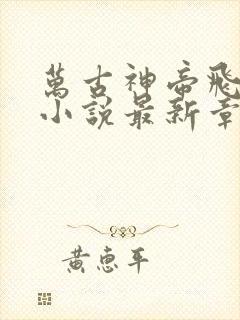 萬古神帝飛
小說最新章
黃惠平